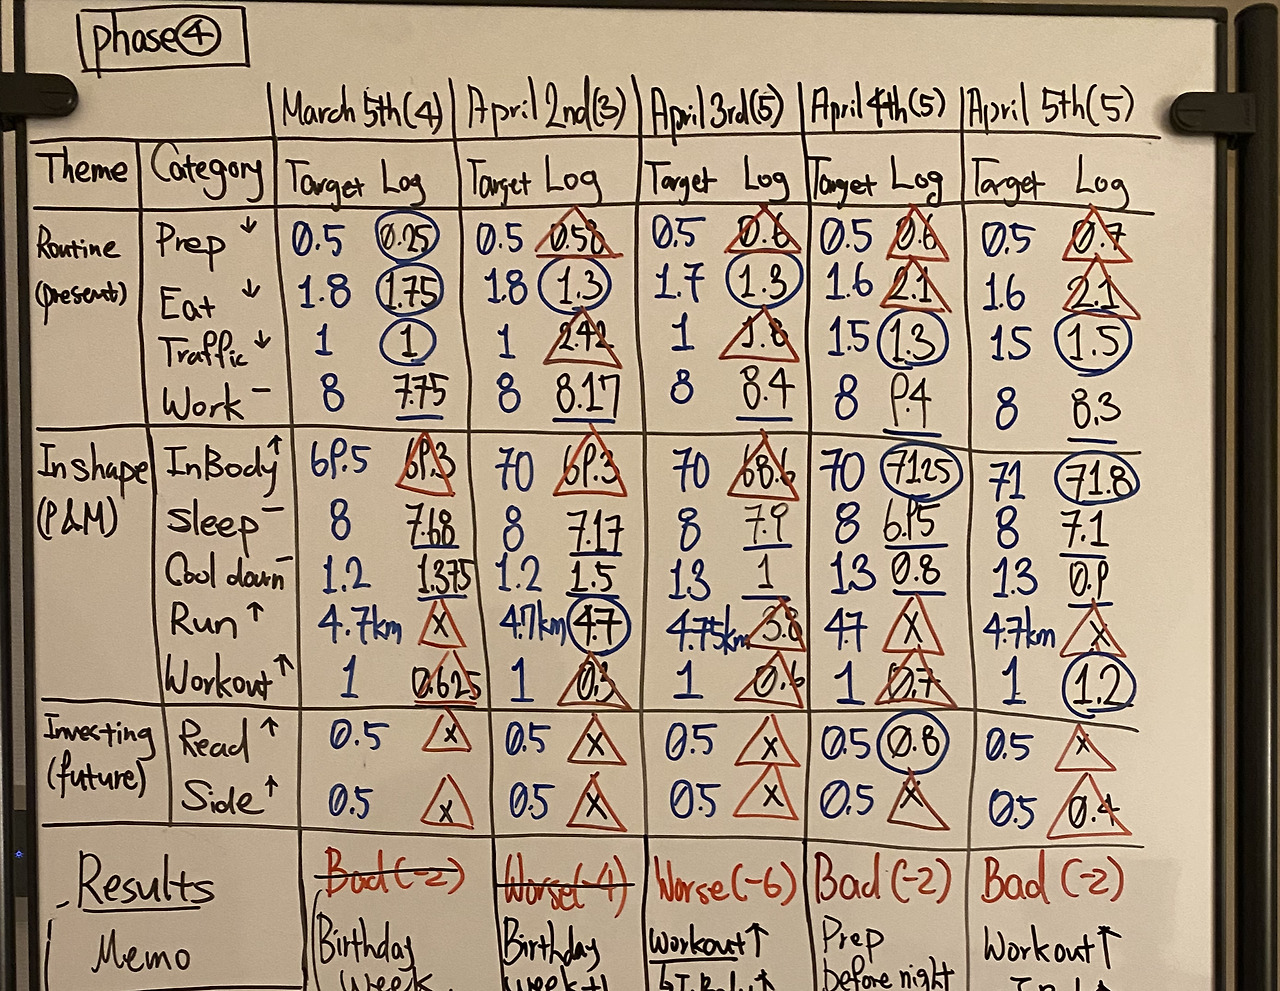 phase④
March 5th(4) April 2nd(3) April 3rd(5) April 4th(5) April 5th(5)
Theme Category Target Log Target Log Target Log Target Log Target Log
Routine (present) Prep ↓ 0.5 0.25 0.5 0.58 0.5 0.6 0.5 0.6 0.5 0.7
Eat ↓ 1.8 1.75 1.8 1.3 1.7 1.3 1.6 2.1 1.6 2.1
Traffic ↓ 1 1 1 2.42 1 1.8 1.5 1.3 1.5 1.5
Work - 8 7.75 8 8.17 8 8.4 8 9.4 8 8.3
Inshape (P&M) InBody ↑ 69.5 69.3 70 69.3 70 68.6 70 71.25 71 71.8
Sleep - 8 7.68 8 7.17 8 7.9 8 6.95 8 7.1
Cool down - 1.2 1.375 1.2 1.5 1.3 1 1.3 0.8 1.3 0.9
Run ↑ 4.7km x 4.7km 4.7 4.75km 3.8 4.7 x 4.7km x
Workout ↑ 1 0.625 1 0.3 1 0.6 1 0.7 1 1.2
Investing (future) Read ↑ 0.5 x 0.5 x 0.5 x 0.5 0.8 0.5 x
Side ↑ 0.5 x 0.5 x 0.5 x 0.5 x 0.5 0.4
Results Bad (-2) Worse(-4) Worse(-6) Bad (-2) Bad (-2)
Memo Birthday Birthday Workout↑ Prep Workout↑
Week Week before night